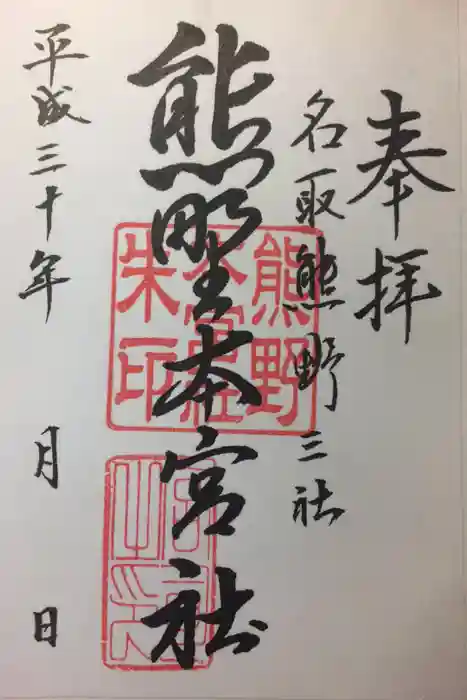 奉拝
名取熊野三社
熊野本宮社
平成三十年 月 日
熊野
本宮社
朱印